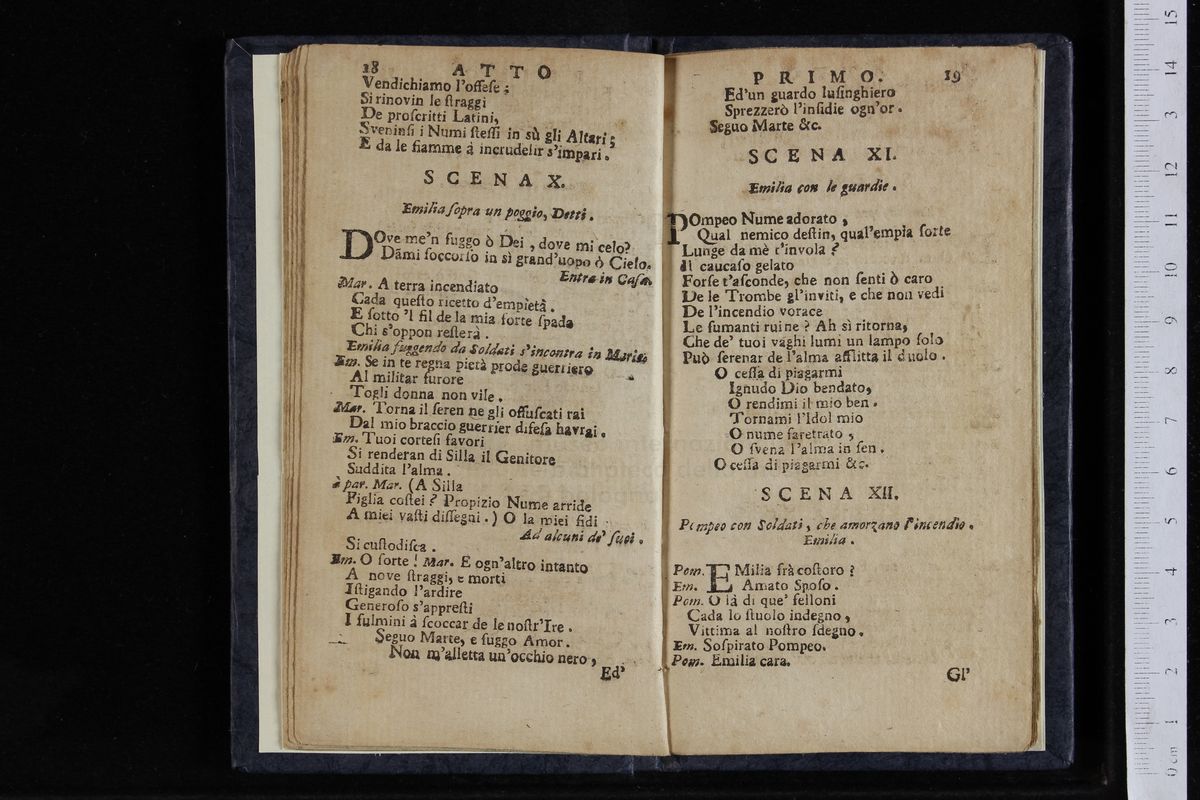 18 ATTO
Vendichiamo l'offeſe ;
Si rinovin le ſtraggi
De proſcritti Latini,
Sveninſi i Numi ſteſſi in sù gli Altari ;
E da le fiamme à incrudelir s'impari .
SCENA X.
Emilia ſopra un poggio, Detti .
DOve me'n fuggo ò Dei , dove mi celo?
Dāmi ſoccorſo in sì grand'uopo ò Cielo.
Entra in Caſa.
Mar. A terra incendiato
Cada queſto ricetto d'empietà .
E ſotto 'l fil de la mia forte ſpada
Chi s'oppon reſterà .
Emilia fuggendo da Soldati s'incontra in Mario
Em. Se in te regna pietà prode guerriero
Al militar furore
Togli donna non vile .
Mar. Torna il ſeren ne gli offuſcati rai
Dal mio braccio guerrier difeſa havrai .
Em. Tuoi corteſi favori
Si renderan di Silla il Genitore
Suddita l'alma .
à par. Mar. (A Silla
Figlia coſtei ? Propizio Nume arride
A miei vaſti diſſegni . ) O la miei fidi
Ad alcuni de' ſuoi .
Si cuſtodiſca .
Em. O ſorte ! Mar. E ogn'altro intanto
A nove ſtraggi, e morti
Iſtigando l'ardire
Generoſo s'appreſti
I fulmini à ſcoccar de le noſtr'Ire .
Seguo Marte, e fuggo Amor .
Non m'alletta un'occhio nero ,
Ed'
PRIMO. 19
Ed'un guardo luſinghiero
Sprezzerò l'inſidie ogn'or .
Seguo Marte &c.
SCENA XI.
Emilia con le guardie .
POmpeo Nume adorato ,
Qual nemico deſtin, qual'empia ſorte
Lunge da mè t'invola ?
Il caucaſo gelato
Forſe t'aſconde, che non ſenti ò caro
De le Trombe gl'inviti, e che non vedi
De l'incendio vorace
Le fumanti ruine ? Ah sì ritorna,
Che de' tuoi vaghi lumi un lampo ſolo
Può ſerenar de l'alma afflitta il duolo .
O ceſſa di piagarmi
Ignudo Dio bendato,
O rendimi il mio ben .
Tornami l'Idol mio
O nume faretrato ,
O ſvena l'alma in ſen .
O ceſſa di piagarmi &c.
SCENA XII.
Pompeo con Soldati , che amorzano l'incendio .
Emilia .
Pom. EMilia frà coſtoro ?
Em. Amato Spoſo .
Pom. O là di que' felloni
Cada lo ſtuolo indegno ,
Vittima al noſtro ſdegno .
Em. Soſpirato Pompeo.
Pom. Emilia cara.
Gl'
0 cm 1 2 3 4 5 6 7 8 9 10 11 12 13 14 15